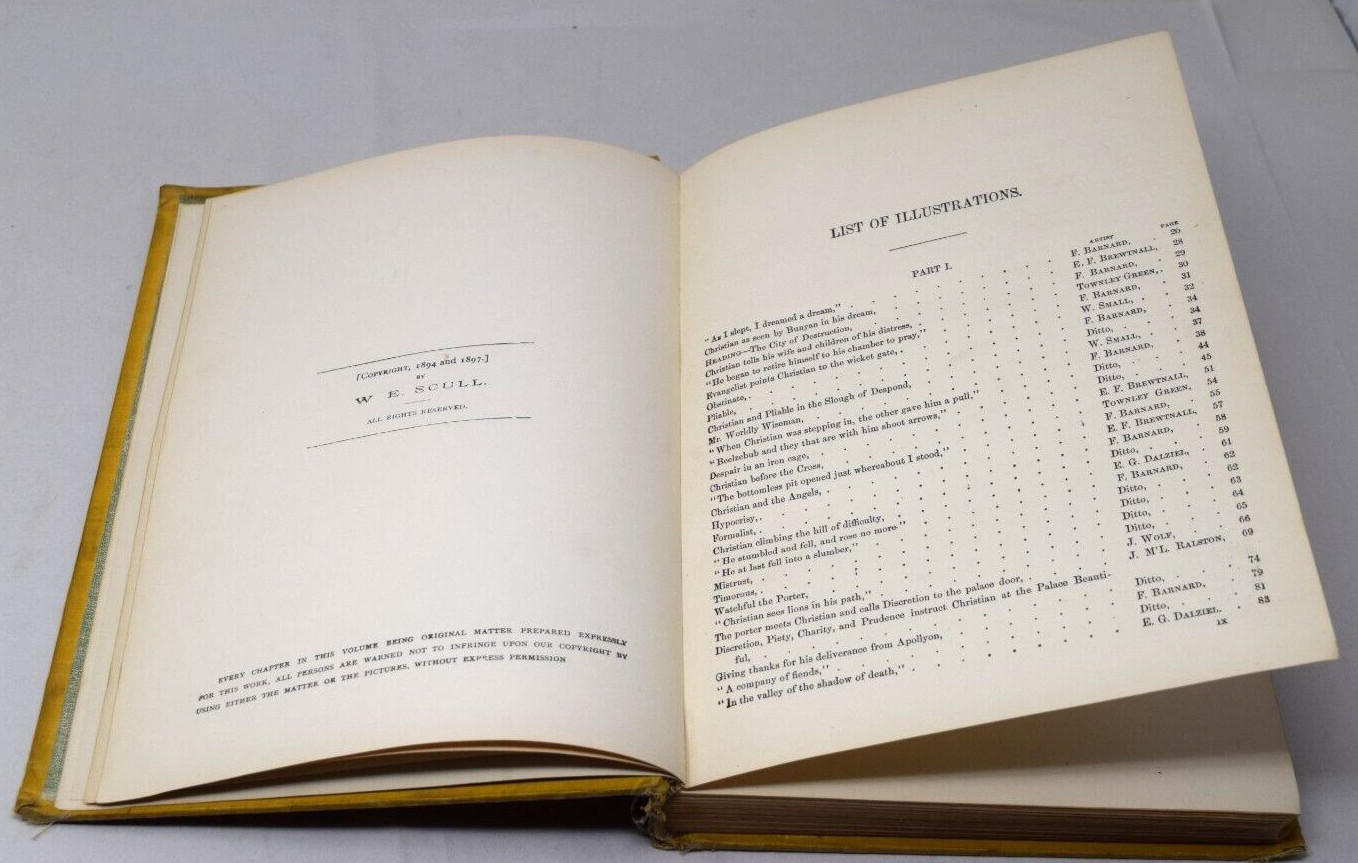 [Copyright, 1894 and 1897.]
BY
W. E. SCULL.
ALL RIGHTS RESERVED.
EVERY CHAPTER IN THIS VOLUME BEING ORIGINAL MATTER PREPARED EXPRESSLY
FOR THIS WORK, ALL PERSONS ARE WARNED NOT TO INFRINGE UPON OUR COPYRIGHT BY
USING EITHER THE MATTER OR THE PICTURES, WITHOUT EXPRESS PERMISSION
LIST OF ILLUSTRATIONS.
PART I.
ARTIST PAGE
"As I slept, I dreamed a dream," F. BARNARD,
Christian as seen by Bunyan in his dream, E. F. BREWTNALL, 28
HEADING—The City of Destruction, F. BARNARD, 29
Christian tells his wife and children of his distress, TOWNLEY GREEN, 30
"He began to retire himself to his chamber to pray," F. BARNARD, 31
Evangelist points Christian to the wicket gate, W. SMALL, 32
Obstinate, F. BARNARD, 34
Pliable, Ditto, 34
Christian and Pliable in the Slough of Despond, W. SMALL, 37
Mr. Worldly Wiseman, F. BARNARD, 38
"When Christian was stepping in, the other gave him a pull," Ditto, 44
"Beelzebub and they that are with him shoot arrows," Ditto, 45
Despair in an iron cage, E. F. BREWTNALL, 51
Christian before the Cross, TOWNLEY GREEN, 54
"The bottomless pit opened just whereabout I stood," F. BARNARD, 55
Christian and the Angels, E. F. BREWTNALL, 57
Hypocrisy, F. BARNARD, 58
Formalist, Ditto, 59
Christian climbing the hill of difficulty, E. G. DALZIEL, 61
"He stumbled and fell, and rose no more." F. BARNARD, 62
"He at last fell into a slumber," Ditto, 62
Mistrust, Ditto, 63
Timorous, Ditto, 64
Watchful the Porter, Ditto, 65
"Christian sees lions in his path," J. WOLF, 66
The porter meets Christian and calls Discretion to the palace door, J. M'L. RALSTON, 69
Discretion, Piety, Charity, and Prudence instruct Christian at the Palace Beauti-
ful, Ditto, 74
Giving thanks for his deliverance from Apollyon, F. BARNARD, 79
"A company of fiends," Ditto, 81
"In the valley of the shadow of death," E. G. DALZIEL. 83
IX